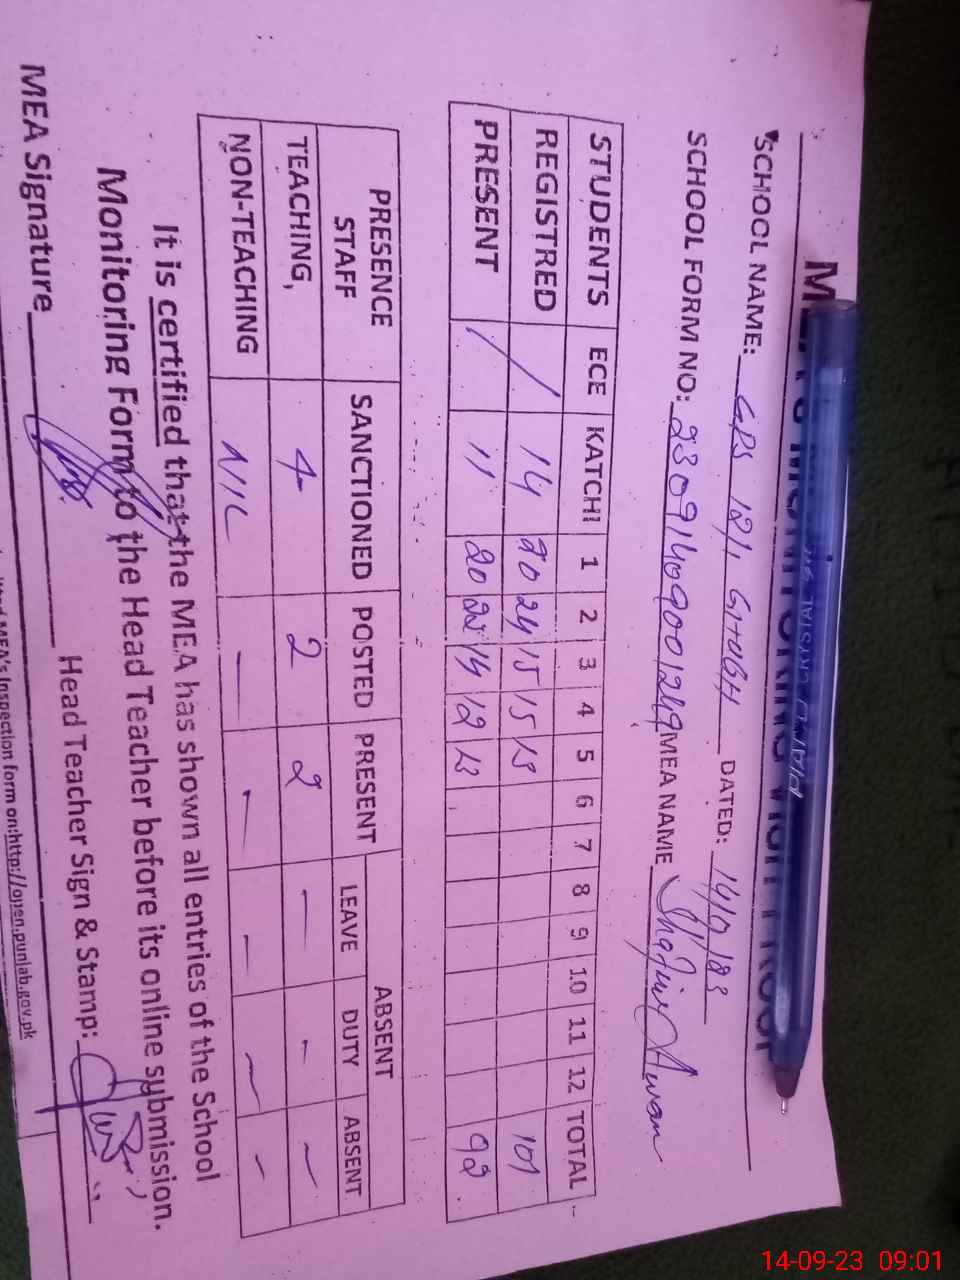 SCHOOL NAME: GPS 12/1 GHAGH DATED: 14/9/23
SCHOOL FORM NO: 23091409001249 MEA NAME Awan
STUDENTS ECE KATCHI 1 2 3 4 5 6 7 8 9 10 11 12 TOTAL
REGISTRED / 14 20 24 15 15 13 101
PRESENT / 11 20 22 14 12 13 92
PRESENCE STAFF SANCTIONED POSTED PRESENT ABSENT
LEAVE DUTY ABSENT
TEACHING, 4 2 2 — — —
NON-TEACHING NIL — — — — —
It is certified that the MEA has shown all entries of the School
Monitoring Form to the Head Teacher before its online submission.
MEA Signature Head Teacher Sign & Stamp:
MEA's Inspection form on:http://open.punjab.gov.pk
14-09-23 09:01